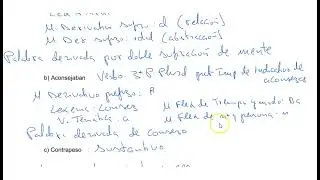 M Derivativo sufijo: al (relación)
M Der sufijo: idad (abstracción)
Palabra derivada por doble sufijación de mente
b) Aconsejaban
Verbo. 3ª P Plural pret Imp de Indicativo de
aconsejar
M Derivativo prefijo: A
M Flex de Tiempo y modo: Ba
V. Temática: a
M Flex de nº y persona: n
Palabra derivada de consejo
c) Contrapeso: Sustantivo